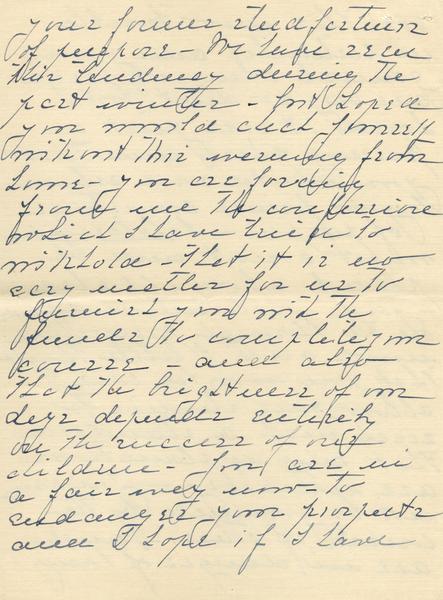 your former steadfastness
of purpose - We have seen
this tendency during the
past winter - but hoped
you would check yourself
without this warning from
home - you are forcing
from me the confession
which I have tried to
withhold - that it is no
easy matter for us to
furnish you with the
funds to complete your
course - and also
that the brightness of our
days depends entirely
on the success of our
children - You are in
a fair way now to
endanger your prospects
and I hope if I have